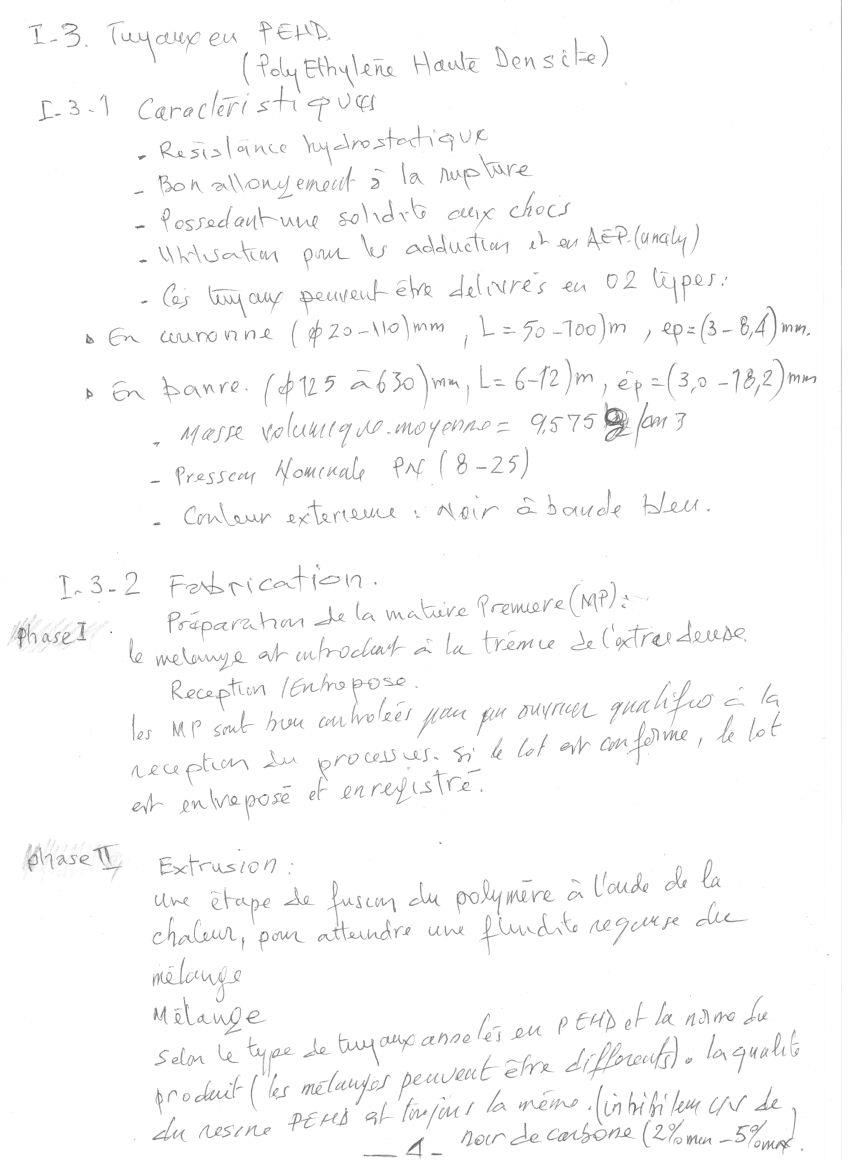 I-3. Tuyaux en PEHD.
(PolyEthylène Haute Densité)
I-3-1 Caractéristiques
- Résistance hydrostatique
- Bon allongement à la rupture
- Possedant une solidité aux chocs
- Utilisation pour les adduction et en AEP.
- Ces tuyaux peuvent être délivrés en 02 types:
▹ En couronne (φ20-110)mm, L=50-100)m, ep=(3-8,4)mm.
▹ En barre. (φ125 à 630)mm, L=6-12)m, ép=(3,0-18,2)mm
- Masse volumique moyenne = 9,575 g/cm3
- Pression Nominale PN (8-25)
- Couleur exterieure : Noir à bande bleu.
I-3-2 Fabrication.
Phase I Préparation de la matière Première (MP):
le melange est introduit à la trémie de l'extrudeuse.
Reception /Entrepose.
les MP sont bien controlées par un ouvrier qualifié à la
reception du processus. si le lot est conforme, le lot
est entreposé et enregistré.
Phase II Extrusion:
une étape de fusion du polymère à l'aide de la
chaleur, pour atteindre une fluidité requise du
mélange
Mélange
Selon le type de tuyaux annelés en PEHD et la norme du
produit (les mélanges peuvent être différents). la qualité
du resine PEHD est toujours la même. (inhibiteur UV de
noir de carbone (2% min - 5% max).
- 1 -